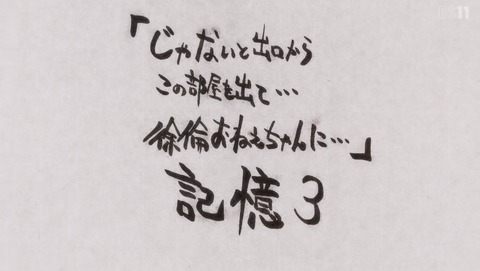 「じゃないと出口から
この部屋を出て…
徐倫おねえちゃんに…」
記憶3
11